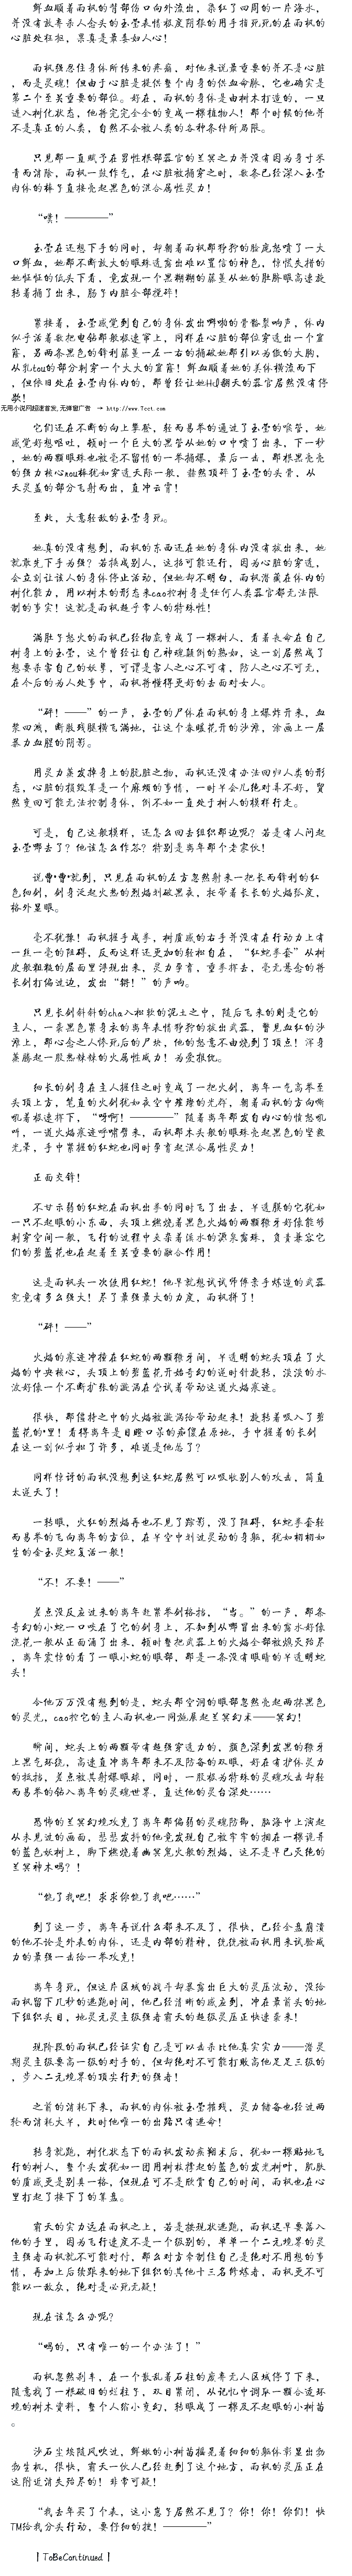 鲜血顺着雨枫的背部伤口向外流出，染红了四周的一片海水，
并没有放弃杀人念头的玉莹表情极度阴狠的用手指死死的在雨枫的
心脏处狂抠，果真是最毒妇人心！
雨枫强忍住身体所传来的疼痛，对他来说最重要的并不是心脏
，而是灵魂！但由于心脏是提供整个肉身的供血命脉，它也确实是
第二个至关重要的部位。好在，雨枫的身体是由树木打造的，一旦
进入树化状态，他将完完全全的变成一棵植物人！那个时候的他并
不是真正的人类，自然不会被人类的各种条件所局限。
只见那一直赋予在男性根部器官的兰冥之力并没有因为身寸米
青而消除，雨枫一鼓作气，在心脏被捅穿之时，数条已经深入玉莹
肉体的棒子直接亮起黑色的混合属性灵力！
“噗！————”
玉莹在还想下手的同时，却朝着雨枫那狰狞的脸庞怒喷了一大
口鲜血，她那不断放大的眼珠透露出难以置信的神色，惊慌失措的
她怔怔的低头下看，竟发现一个黑糊糊的藤蔓从她的肚脐眼高速旋
转着捅了出来，肠子内脏全部搅碎！
紧接着，玉莹感觉到自己的身体发出噼啪的骨骼裂响声，体内
似乎活着数把电钻那般极速窜上，同样在心脏的部位穿透出一个窟
窿，另两条黑色的锋利藤蔓一左一右的捅破她那引以为傲的大胸，
从乳tou的部分刺穿一个大大的窟窿！鲜血顺着她的美体横流而下
，但依旧处在玉莹肉体内的，那曾经让她High翻天的器官居然没有停
歇！
无用小说网超速首发，无弹窗广告 → http://www.7cct.com
它们还在不断的向上攀登，轻而易举的通过了玉莹的喉管，她
感觉好想呕吐，顿时一个巨大的黑管从她的口中喷了出来，下一秒
，她的两颗眼珠也被毫不留情的一举捅爆，最后一击，那根黑亮亮
的强力核心rou棒犹如穿透天际一般，赫然顶碎了玉莹的头骨，从
天灵盖的部分飞射而出，直冲云霄！
至此，大意轻敌的玉莹身死。
她真的没有想到，雨枫的东西还在她的身体内没有拔出来，她
就敢先下手为强？若换成别人，这招可能还行，因为心脏的穿透，
会立刻让该人的身体停止活动，但她却不明白，雨枫潜藏在体内的
树化能力，用以树木的形态来cao控树身是任何人类器官都无法限
制的事实！这就是雨枫超乎常人的特殊性！
满肚子怒火的雨枫已经彻底变成了一棵树人，看着丧命在自己
树身上的玉莹，这个曾经让自己神魂颠倒的熟女，这一刻居然成了
想要杀害自己的妖孽，可谓是害人之心不可有，防人之心不可无，
在今后的为人处事中，雨枫将懂得更好的去面对女人。
“砰！——”的一声，玉莹的尸体在雨枫的身上爆炸开来，血
浆四溅，断肢残腿横飞满地，让这个春暖花开的沙滩，涂画上一层
暴力血腥的阴影。
用灵力蒸发掉身上的肮脏之物，雨枫还没有办法回归人类的形
态，心脏的损毁算是一个麻烦的事情，一时半会儿绝对弄不好，贸
然变回可能无法控制身体，倒不如一直处于树人的模样行走。
可是，自己这般模样，还怎么回去组织那边呢？若是有人问起
玉莹哪去了？他该怎么作答？特别是离年那个老家伙！
说曹•曹•就到，只见在雨枫的左方忽然射来一把长而锋利的红
色细剑，剑身泛起火热的烈焰划破黑夜，拖带着长长的火焰弧度，
格外显眼。
毫不犹豫！雨枫握手成拳，树质感的右手并没有在行动力上有
一丝一毫的阻碍，反而这样还更加的轻松自在，“红蛇手套”从树
皮般粗糙的层面里浮现出来，灵力孕育，重拳挥击，毫无悬念的将
长剑打偏过边，发出“锵！”的声响。
只见长剑斜斜的cha入松软的泥土之中，随后飞来的则是它的
主人，一袭黑色紧身衣的离年表情狰狞的拔出武器，瞥见血红的沙
滩上，那心念之人惨死后的尸块，他的怒意不由烧到了顶点！浑身
蒸腾起一股热辣辣的火属性威力！为爱报仇。
细长的剑身在主人握住之时变成了一把火剑，离年一气高举至
头顶上方，笔直的火剑犹如夜空中璀璨的光辉，朝着雨枫的方向嘶
吼着极速挥下，“呀啊！————”随着离年那发自内心的愤怒吼
叫，一道火焰痕迹呼啸劈来，雨枫那木头般的眼珠亮起黑色的坚毅
光晕，手中紧握的红蛇也同时孕育起混合属性灵力！
正面交锋！
不甘示弱的红蛇在雨枫出拳的同时飞了出去，半透膜的它犹如
一只不起眼的小东西，头顶上燃烧着黑色火焰的两颗獠牙好像能够
刺穿空间一般，飞行的过程中夹杂着溪水的源泉露珠，负责兼容它
们的剪蓝花也在起着至关重要的融合作用！
这是雨枫头一次使用红蛇！他早就想试试师傅亲手炼造的武器
究竟有多么强大！尽了最强最大的力度，雨枫拼了！
“砰！——”
火焰的痕迹冲撞在红蛇的两颗獠牙间，半透明的蛇头顶在了火
焰的中央核心，头顶上的剪蓝花开始奇幻的逆时针旋转，淡淡的水
波好像一个不断扩张的漩涡在尝试着带动这道火焰痕迹。
很快，那僵持之中的火焰被漩涡给带动起来！旋转着吸入了剪
蓝花的•里！看得离年是目瞪口呆的痴傻在原地，手中握着的长剑
在这一刻似乎松了许多，难道是他怂了？
同样惊讶的雨枫没想到这红蛇居然可以吸收别人的攻击，简直
太逆天了！
一转眼，火红的烈焰再也不见了踪影，没了阻碍，红蛇手套轻
而易举的飞向离年的方位，在半空中划过灵动的身躯，犹如栩栩如
生的含玉灵蛇复活一般！
“不！不要！——”
差点没反应过来的离年赶紧举剑格挡，“当。”的一声，那条
奇幻的小蛇一口咬在了它的剑身上，不知到从哪冒出来的露水好像
浇花一般从正面涌了出来，顿时整把武器上的火焰全部被熄灭殆尽
，离年震惊的看了一眼小蛇的眼部，那是一条没有眼睛的半透明蛇
头！
令他万万没有想到的是，蛇头那空洞的眼部忽然亮起两抹黑色
的灵光，cao控它的主人雨枫也一同施展起兰冥幻术——冥幻！
瞬间，蛇头上的两颗带有超强穿透力的，颜色深到发黑的獠牙
上黑气环绕，高速直冲离年那来不及防备的双眼，好在有护体灵力
的抵挡，差点被其射爆眼球，同时，一股极为特殊的灵魂攻击却轻
而易举的钻入离年的灵魂世界，直达他的灵台深处……
恐怖的兰冥幻境攻克了离年那偏弱的灵魂防御，脑海中上演起
从未见过的画面，瑟瑟发抖的他竟发现自己被牢牢的捆在一棵诡异
的蓝色妖树上，脚下燃烧着幽冥鬼火般的烈焰，这不是早已灭绝的
兰冥神木吗？！
“饶了我吧！求求你饶了我吧……”
到了这一步，离年再说什么都来不及了，很快，已经全盘崩溃
的他不论是外表的肉体，还是内部的精神，统统被雨枫用来试验威
力的最强一击给一举攻克！
离年身死，但这片区域的战斗却暴露出巨大的灵压波动，没给
雨枫留下几秒的逃跑时间，他已经清晰的感应到，冲在最前头的地
下组织头目，地灵元灵主级强者霸天的超级灵压正快速袭来！
现阶段的雨枫已经证实自己是可以击杀比他真实实力——潜灵
期灵主级要高一级的对手的，但却绝对不可能打败高他足足三级的
，步入二元境界的顶尖行列的强者！
之前的消耗下来，雨枫的肉体被玉莹摧残，灵力储备也经过两
轮而消耗大半，此时他唯一的出路只有逃命！
转身就跑，树化状态下的雨枫发动疾翔术后，犹如一棵贴地飞
行的树人，整个头发犹如一团用树枝撑起的蓝色的发光树叶，肌肤
的质感更是别具一格，但现在可不是欣赏自己的时间，雨枫也在心
里打起了接下了的算盘。
霸天的实力远在雨枫之上，若是按现状逃跑，雨枫迟早要落入
他的手里，因为飞行速度不是一个级别的，单单一个二元境界的灵
主强者雨枫就不可能对付，那么对方牵制住自己是绝对不用想的事
情，再加上后续跟来的地下组织的其他十三名修炼者，雨枫更不可
能以一敌众，绝对是必死无疑！
现在该怎么办呢？
“妈的，只有唯一的一个办法了！”
雨枫忽然刹车，在一个散乱着石柱的废弃无人区域停了下来，
随意找了一根破旧的烂柱子，双目紧闭，从记忆中调取一颗合适环
境的树木资料，整个人给小变幻，转眼成了一棵及不起眼的小树苗
。
沙石尘埃随风吹过，鲜嫩的小树苗摇晃着细细的躯体彰显出勃
勃生机，很快，霸天一伙人已经赶到了这个地方，雨枫的灵压正在
这附近消失殆尽的！非常可疑！
“我去年买了个表，这小鬼子居然不见了？你！你！你们！快
TM给我分头行动，要仔细的搜！————”
【ToBeContinued】